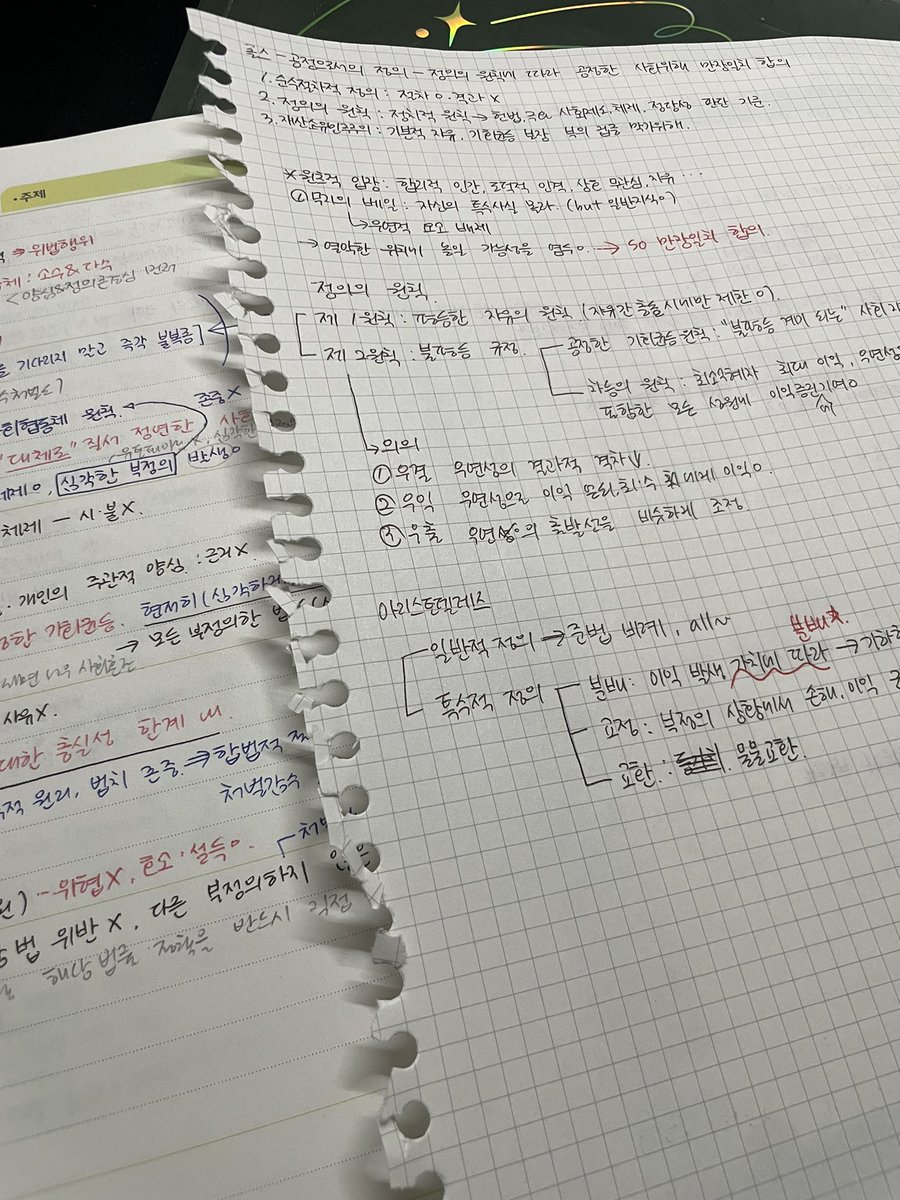 ·주제
⇒ 위법행위
체 : 소수 & 다수
를 기다리지 만고 즉각 불복종]
존중 X
협동체 원칙
"대체로" 질서 정연한 사
체제 O, 심각한 부정의 발생 O
체제 — 시·불 X.
개인의 주관적 양심 : 근거 X
한 기회균등. 현저히 (심각하
→ 모든 부정의한 법
사유 X.
대한 충실성 한계 내.
적 원리, 법치 존중. ⇒ 합법적
처벌감수
) - 위협 X, 호소·설득 O.
법 위반 X, 다른 부정의하지 않은
해당 법을 정책을 반드시 직접
롤스 — 공정으로서의 정의 — 정의의 원칙에 따라 공정한 사회위해 만장일치 합의
1. 순수절차적 정의 : 절차 O·결과 X
2. 정의의 원칙 : 정치적 원칙 → 헌법, 주요 사회제도, 체제 정당성 판단 기준.
3. 재산소유민주주의 : 기본적 자유, 기회균등 보장 부의 집중 막기위해.
* 원초적 입장 : 합리적 인간, 도덕적 인격, 상호 무관심, 자유 ...
무지의 베일 : 자신의 특수사실 몰라. (but 일반지식 O)
↳ 우연적 요소 배제
→ 열악한 위치에 놓일 가능성을 염두 O → so 만장일치 합의
정의의 원칙.
제 1원칙 : 평등한 자유의 원칙 (자유간 충돌 시에만 제한 O).
제 2원칙 : 불평등 규정. 공정한 기회균등 원칙 : "불평등 계기 되는" 사회
차등의 원칙 : 최소수혜자 최대 이익, 우연성
포함한 모든 성원에 이익증진 기여 O
↳ 의의
① 우결 우연성의 결과적 격차 ↓.
② 우익 우연성으로 이익 보되, 최·수 에게 이익 O.
③ 우출 우연성의 출발선을 비슷하게 조정
아리스토텔레스
일반적 정의 → 준법 비례, all~
불배 *
특수적 정의 불배 : 이익 발생 가치에 따라 → 기하
교정 : 부정의 상황에서 손해, 이익
교환 : 물물교환.